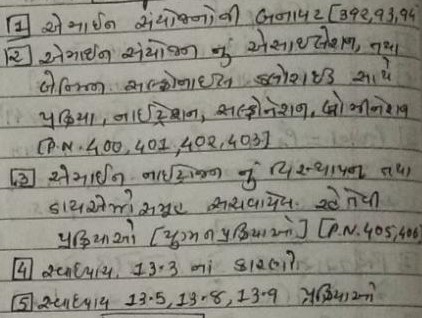 [1] એમાઈન સંયોજનોની બનાવટ [392,93,94
[2] એમાઈન સંયોજન નું એસાઈલેશન, તથા
બેન્ઝિન સલ્ફોનાઈલ ક્લોરાઈડ સાથે
પ્રક્રિયા, નાઈટ્રેશન, સલ્ફોનેશન, બ્રોમીનેશન
[P.N. 400, 401, 402, 403]
[3] એમાઈન નાઈટ્રોજન નું વિસ્થાપન તથા
ડાયએઝો સમૂહ
પ્રક્રિયાઓ [યુગ્મન પ્રક્રિયાઓ] [P.N. 405, 406
[4] સ્વાધ્યાય 13.3 નાં કારણો
[5] સ્વાધ્યાય 13.5, 13.8, 13.9 પ્રક્રિયાઓ